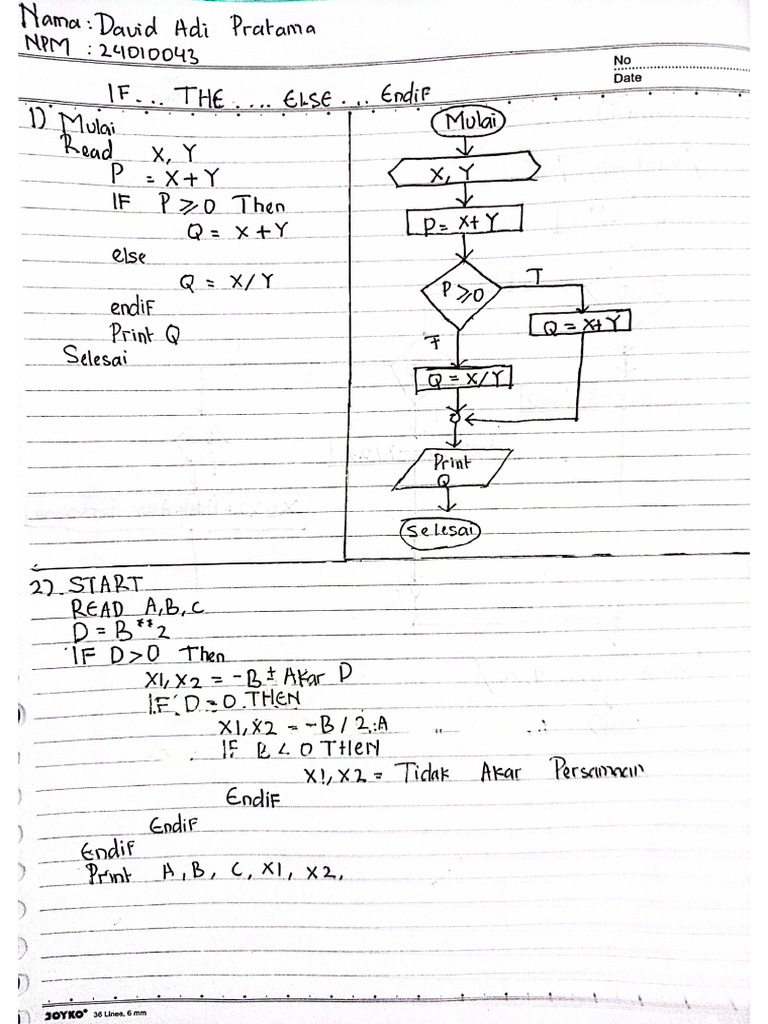 Nama : David Adi Pratama
NPM : 24010043
No
Date
IF... THE .... ELSE ... Endif
1) Mulai
Read X, Y
P = X+Y
IF P ≥ 0 Then
Q = X+Y
else
Q = X/Y
endif
Print Q
Selesai
Mulai
X, Y
P = X+Y
P ≥ 0
T
Q = X+Y
F
Q = X/Y
Print
Q
Selesai
2) START
READ A,B,C
D = B**2
IF D>0 Then
X1, X2 = -B ± Akar D
IF D = 0 THEN
X1, X2 = -B / 2.A
IF < 0 THEN
X1, X2 = Tidak Akar Persamaan
Endif
Endif
Endif
Print A, B, C, X1, X2.
JOYKO® 36 Lines, 6 mm